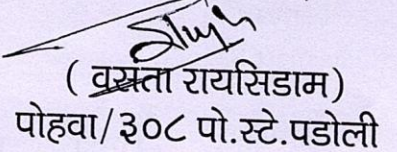 ( वसंता रायसिडाम)
पोहवा/३०८ पो.स्टे.पडोली